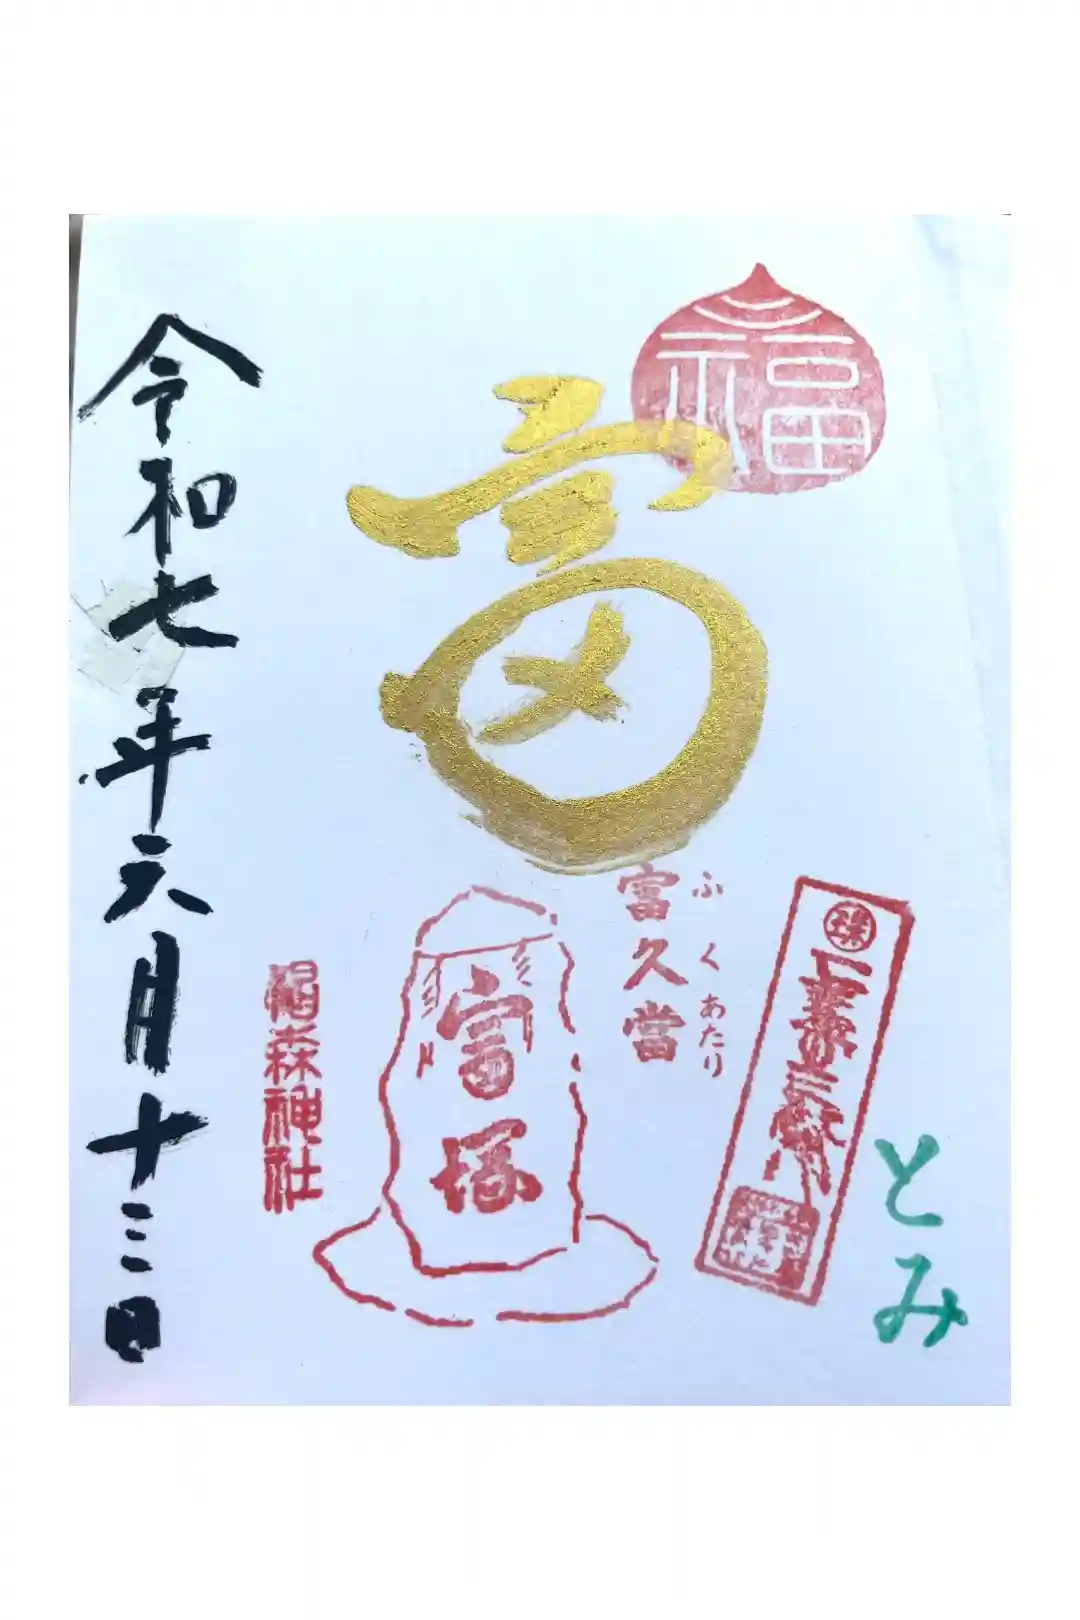 福
富
とみ
富久當
ふくあたり
富塚
椙森神社
令和七年六月十三日